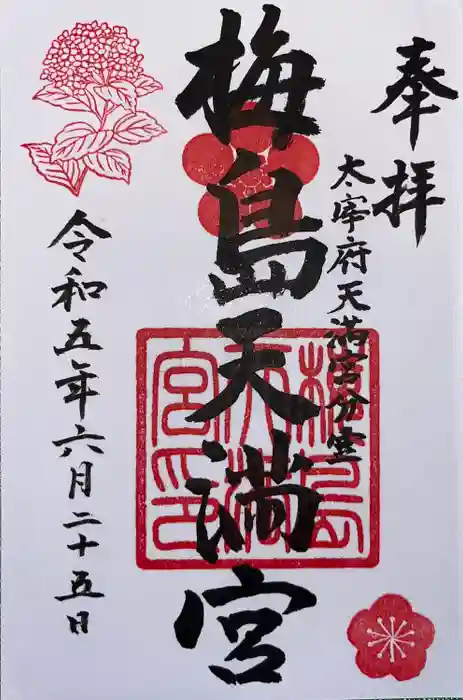 奉拝
太宰府天満宮分霊
梅島天満宮
梅島天満宮印
令和五年六月二十五日